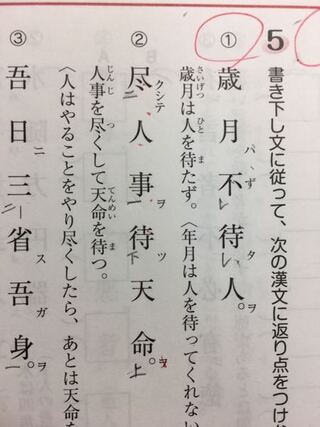 5 書き下し文に従って、次の漢文に返り点をつけ
① 歳月不待人。
歳月は人を待たず。〈年月は人を待ってくれない
② 尽人事待天命。
人事を尽くして天命を待つ。
〈人はやることをやり尽くしたら、あとは天命を
③ 吾日三省吾身。